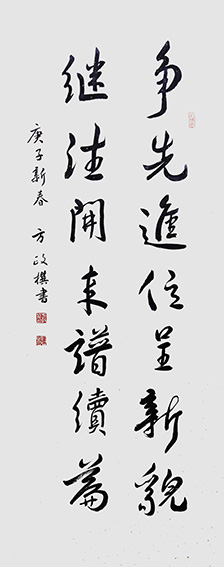 争先進位呈新貌
继往開来譜續篇
庚子新春 方政撰書